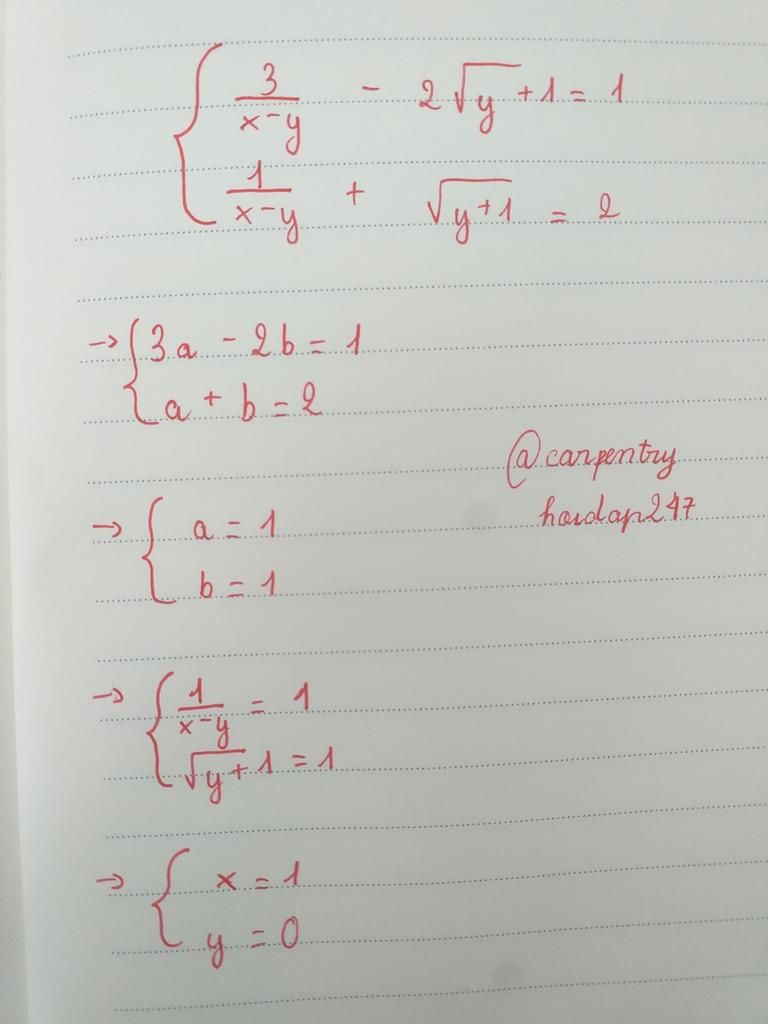 { 3/(x-y) - 2√y+1 = 1
1/(x-y) + √(y+1) = 2
→ { 3a - 2b = 1
a + b = 2
@carpentry
→ { a = 1
b = 1
→ { 1/(x-y) = 1
√y+1 = 1
→ { x = 1
y = 0